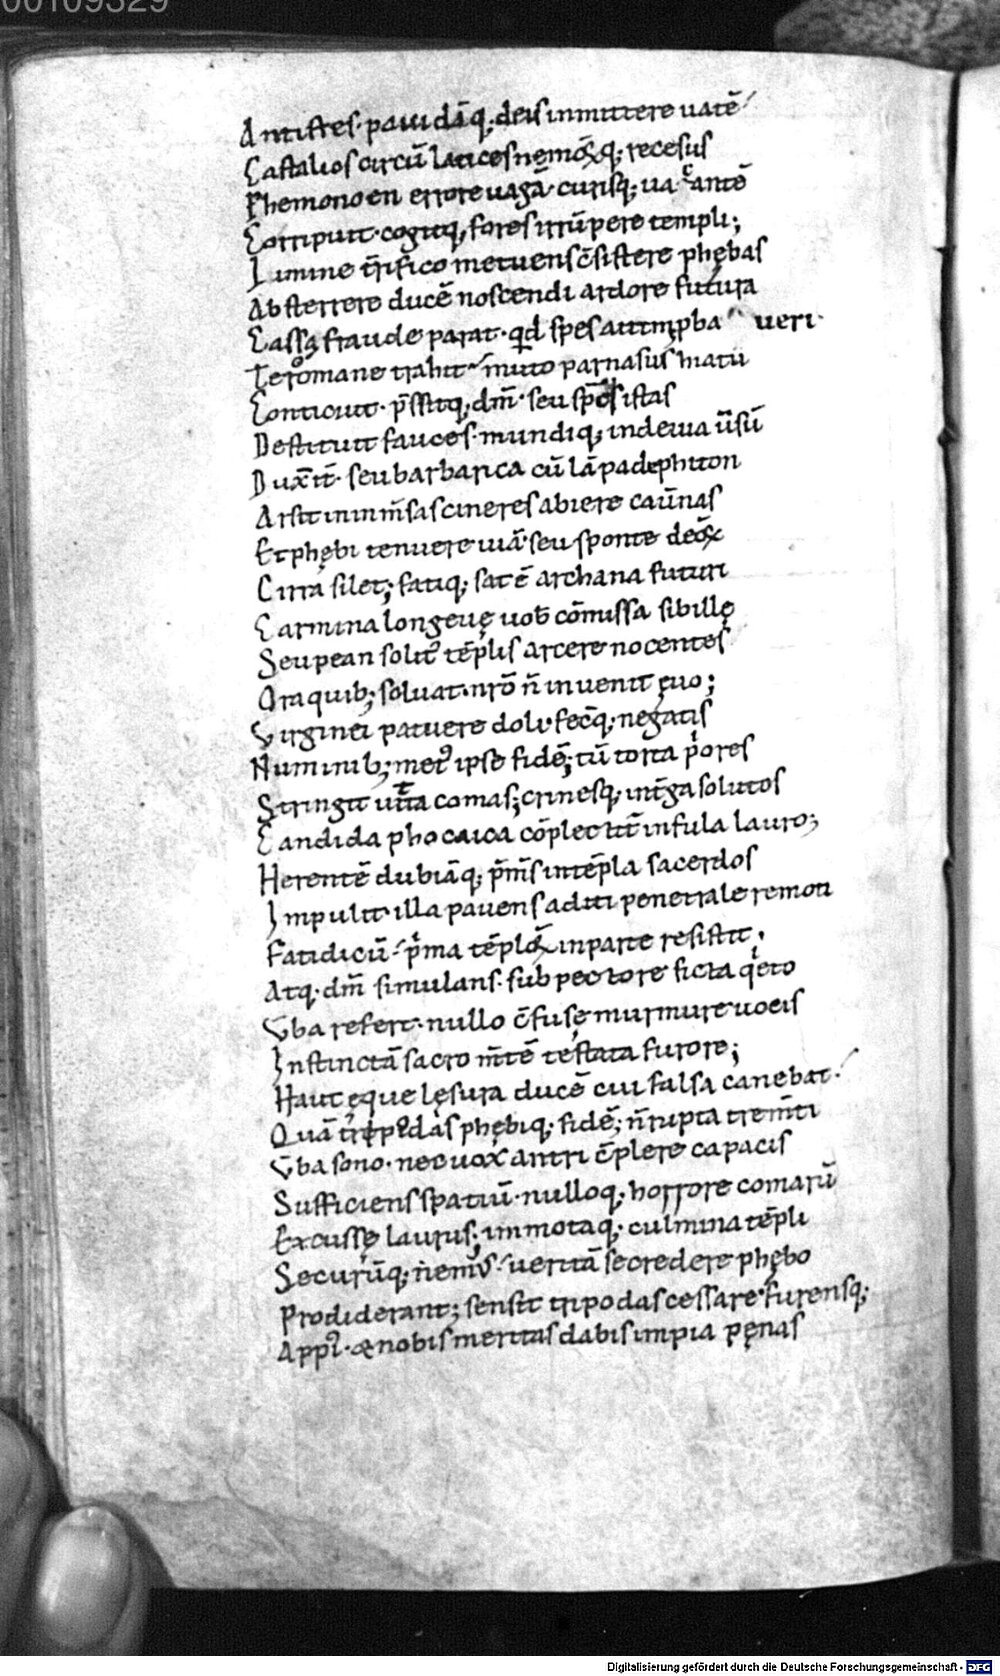 00109329
Antistes· pauidāq; deis inmittere uatē
Castalios circū latices nemoꝝq; recesus
Phemonoen errore uagā· curisq; uacantē
Corripuit· cogitq; fores irrūpere templi;
Limine t̄rifico metuens c̄sistere phębas
Absterrere ducē noscendi ardore futura
Cassa fraude parat· qd spes ait improba ueri·
Te romane trahit muto parnasus hiatu
Conticuit· p̄ssitq; dm̄· seu sp̄s istas
Destituit fauces· mundiq; in deuia ūsū
Dux̄ it̄· seu barbarica cū lāpade phiton
Arsit in inm̄sas cineres abiere cauernas
Et phębi tenuere uiā· seu sponte deoꝝ
Cirra silet; fatiq; sat ē archana futuri
Carmina longeuę uob̄ cōmissa sibillę
Seu pean solit᷒ tēplis arcere nocentes
Ora quib; soluat· nr̄o n̄ inuenit ęuo;
Virginei patuere doli· fecq; negatis
Numinib; met᷒ ipse fidē; tū torta priores
Stringit uitta comas; crinesq; in t̄ga solutos
Candida phocaica cōplectit̄ infula lauro;
Herentē dubiāq; p̄m̄s in tēpla sacerdos
Impulit· illa pauens aditi penetrale remoti
Fatidicū· prima tēploꝝ in parte resistit·
Atq; dm̄ simulans· sub pectore ficta quieto
V̄ba refert· nullo c̄fusę murmure uocis
Instinctā sacro m̄tē testata furore;
Haut ęque lęsura ducē cui falsa canebat·
Quā tripodas phębiq; fidē; n̄ rupta trem̄ti
V̄ba sono· nec uox antri c̄plere capacis
Sufficiens spatiū· nulloq; horrore comarū
Excussę laurus; immotaq; culmina tēpli
Securūq; nem᷒· ueritā se credere phębo
Prodiderant; sensit tripodas cessare· furensq;
Appi᷒· & nobis meritas dabis impia pęnas
Digitalisierung gefördert durch die Deutsche Forschungsgemeinschaft · DFG